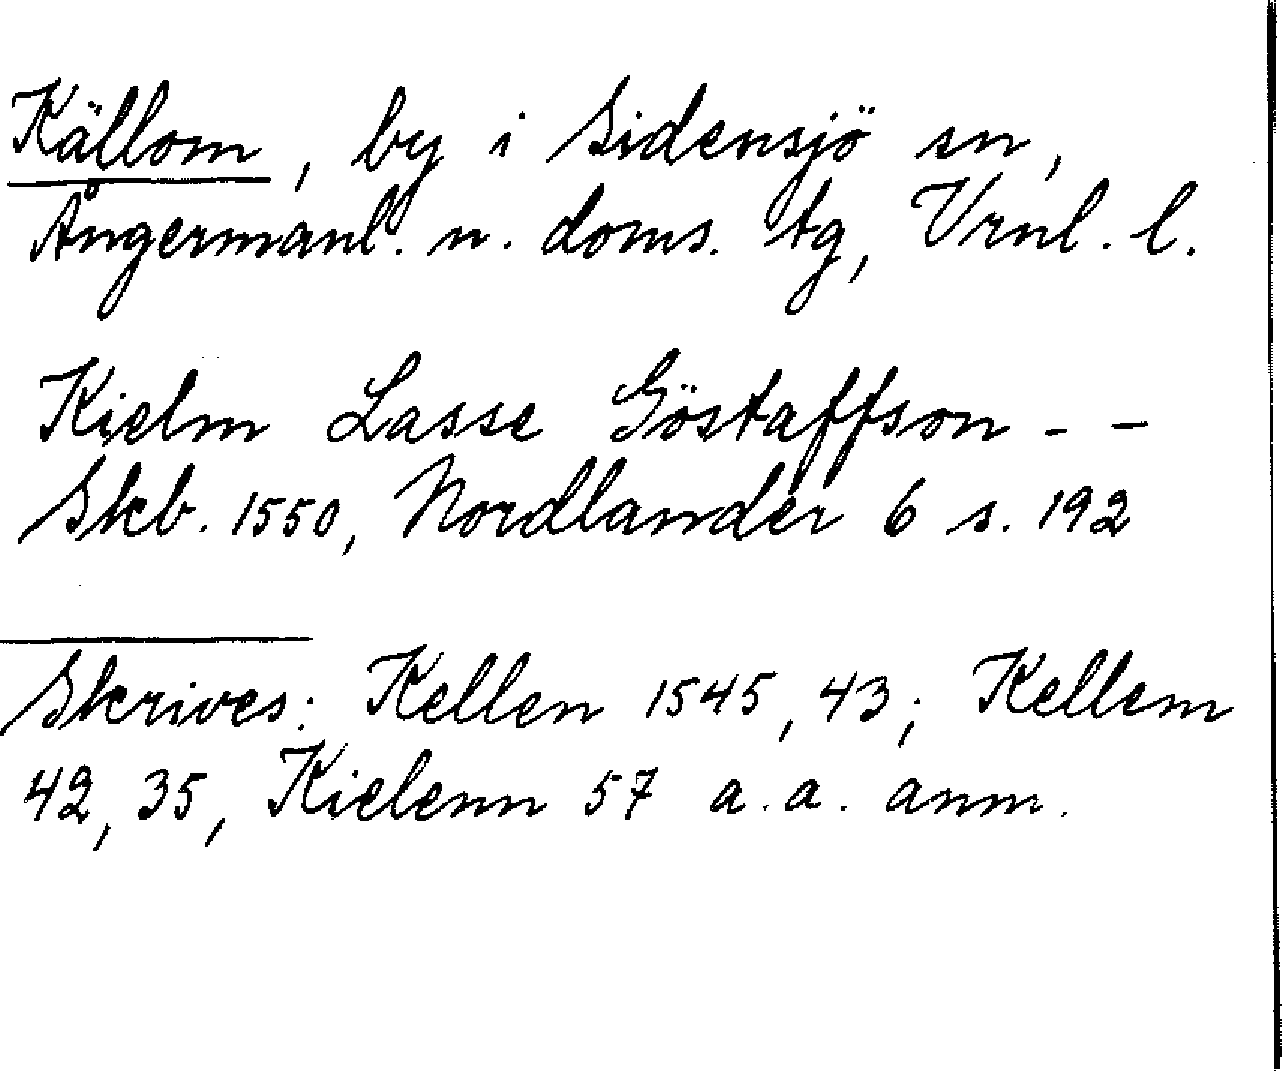 Källom, by i Sidensjö sn,
Ångermanl. n. doms. tg, Vrnl. l.
Kielm Lasse Göstaffson - -
Skb. 1550, Nordlander 6 s. 192
Skrives: Kellen 1545, 43; Kellem
42, 35, Kielenn 57 a.a. anm.